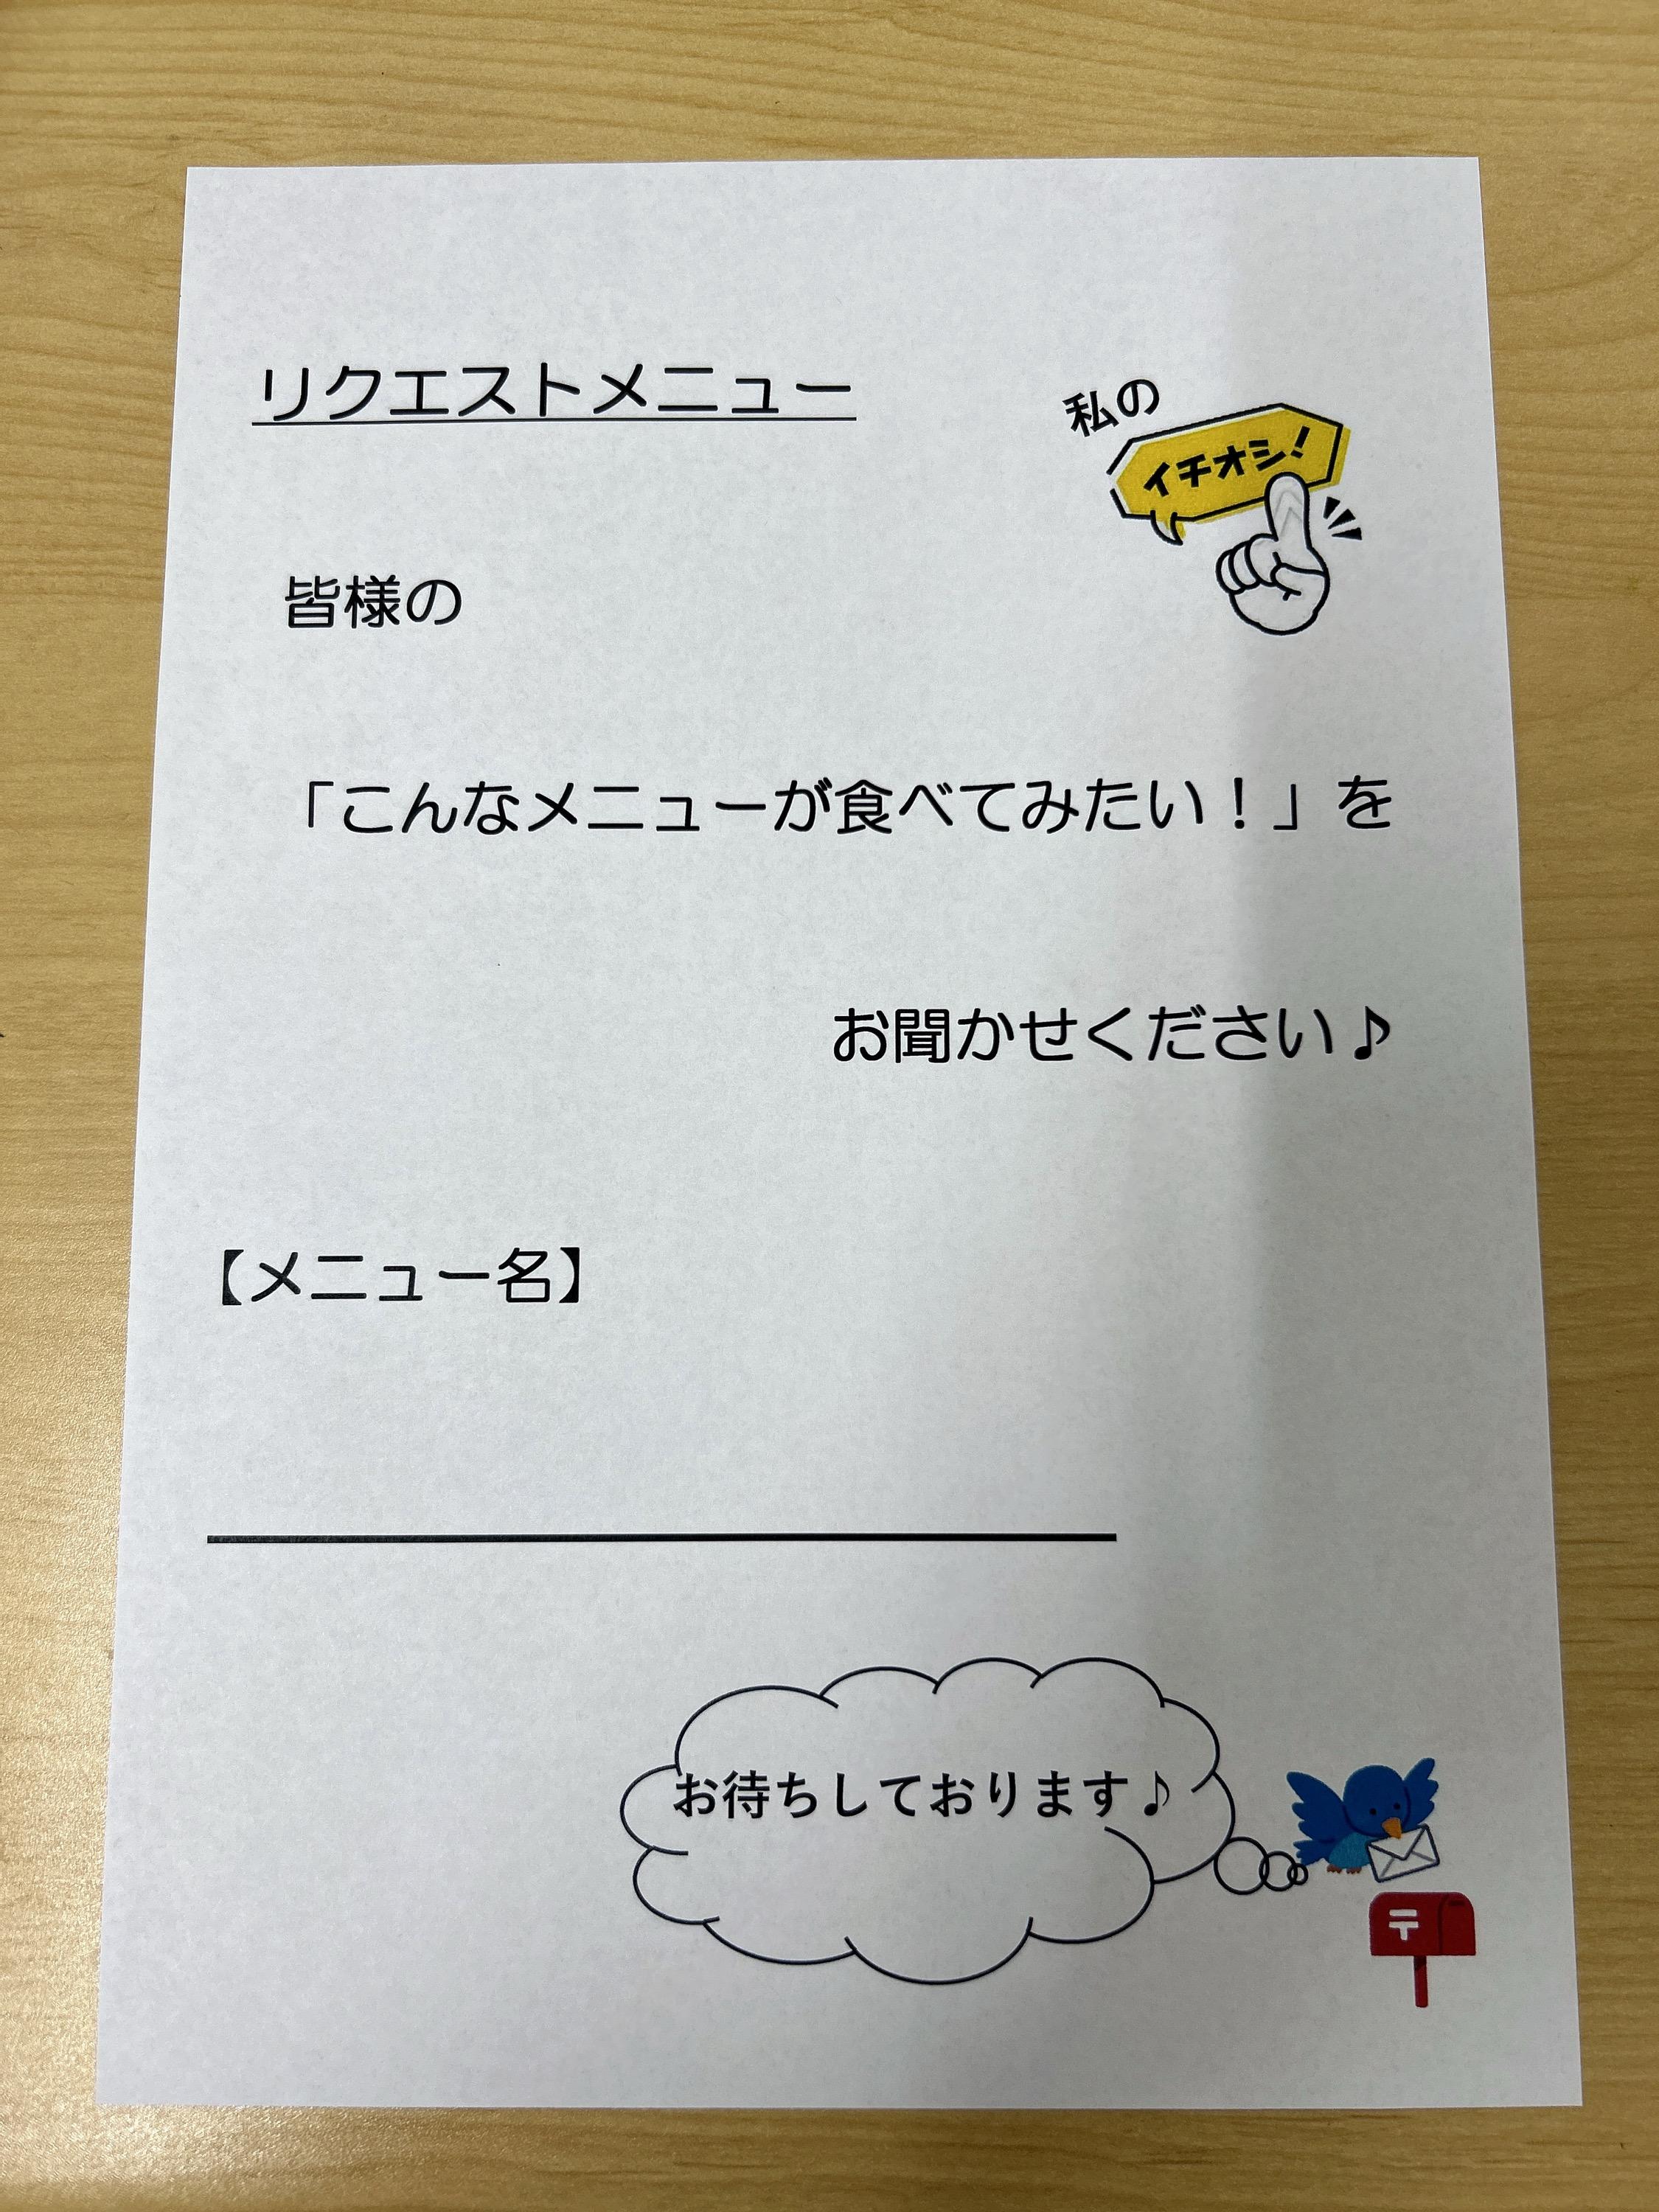 リクエストメニュー
私の
イチオシ!
皆様の
「こんなメニューが食べてみたい！」を
お聞かせください♪
【メニュー名】
お待ちしております♪
〒